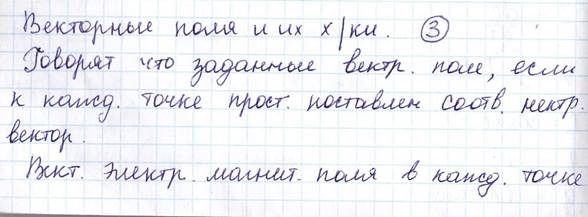 Векторные поля и их х/ки. ③
Говорят что заданные вектр. поле, если
к кажд. точке прост. поставлен соотв. нектр.
вектор.
Вкт. электр. магнит. поля в кажд. точке